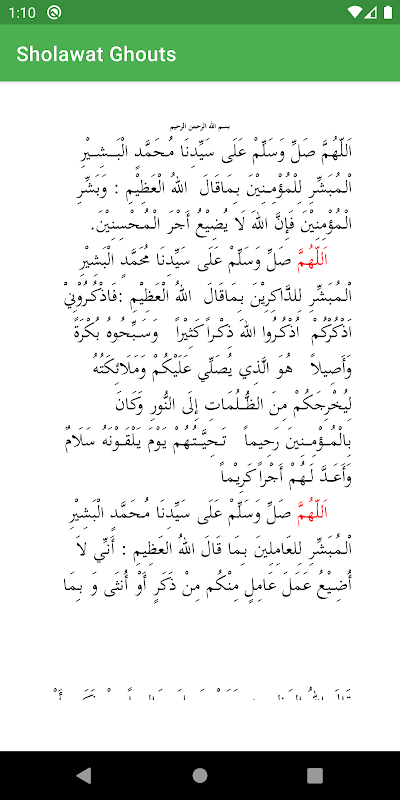 1:10
Sholawat Ghouts
بسم الله الرحمن الرحيم
اَللّٰهُمَّ صَلِّ وَسَلِّمْ عَلَى سَيِّدِنَا مُحَمَّدٍ الْبَــشِــيْرِ
الْـمُبَشِّرِ لِلْمُؤْمِـنِيْنَ بِـمَاقَالَ اللهُ الْعَظِـيْمِ : وَبَشِّرِ
الْـمُؤْمِنِيْنَ فَإِنَّ اللهَ لَا يُضِيْعُ أَجْرَ الْـمُـحْسِنِيْنَ.
اَللّٰهُمَّ صَلِّ وَسَلِّمْ عَلَى سَيِّدِنَا مُحَمَّدٍ الْبَشِيْرِ
الْـمُبَشِّرِ لِلذَّاكِرِيْنَ بِـمَاقَالَ اللهُ الْعَظِيْمِ :فَاذْكُرُوْنِيْ
اَذْكُرْكُمْ اُذْكُرُوا اللهَ ذِكْراً كَثِيْراً وَسَـبِّحُوهُ بُكْرَةً
وَأَصِيلاً هُوَ الَّذِي يُصَلِّي عَلَيْكُمْ وَمَلَائِكَتُهُ
لِيُخْرِجَكُمْ مِنَ الظُّـلُمَاتِ إِلَى النُّورِ وَكَانَ
بِالْمُــؤْمِــنِينَ رَحِيماً تَـحِيَّـتُـهُمْ يَوْمَ يَلْقَـوْنَهُ سَلَامٌ
وَأَعَـدَّ لَـهُمْ أَجْراً كَرِيْماً
اَللّٰهُمَّ صَلِّ وَسَلِّمْ عَلَى سَيِّدِنَا مُـحَمَّدٍ الْبَشِيْرِ
الْـمُبَشِّرِ للعَامِلِينَ بِمَا قَالَ اللهُ العَظِيمِ : أَنِّي لاَ
أُضِيْعُ عَمَلَ عَامِلٍ مِنْكُم مِنْ ذَكَرٍ أَوْ أُنثَى وَ بِمَا